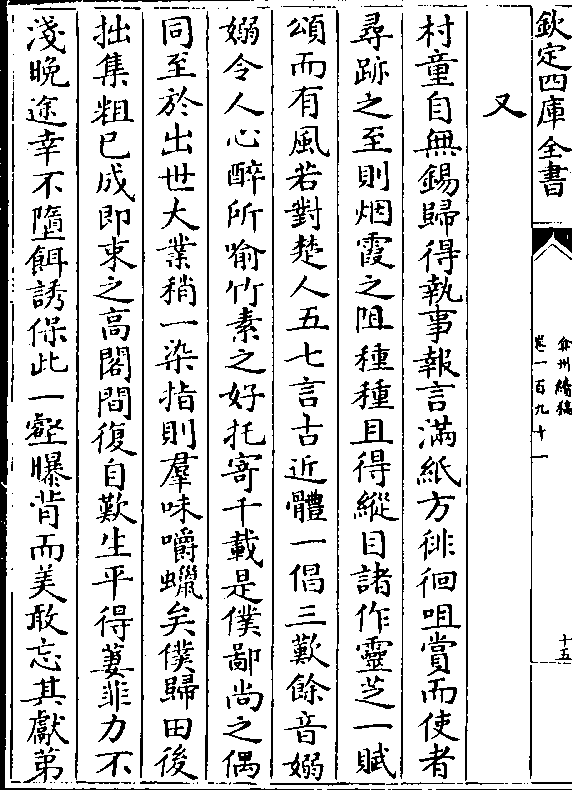 欽定四庫全書
弇州續稿
卷一百九十一
十五
又
村童自無錫歸得執事報言滿紙方徘徊咀賞而使者
尋跡之至則烟霞之阻種種且得縱目諸作靈芝一賦
頌而有風若對楚人五七言古近體一倡三歎餘音嫋
嫋令人心醉所喻竹素之好托寄千載是僕鄙尚之偶
同至於出世大業稍一染指則羣味嚼蠟矣僕歸田後
拙集粗已成即束之高閣間復自歎生平得萋菲力不
淺晚途幸不墮餌誘保此一壑曝背而美敢忘其獻第